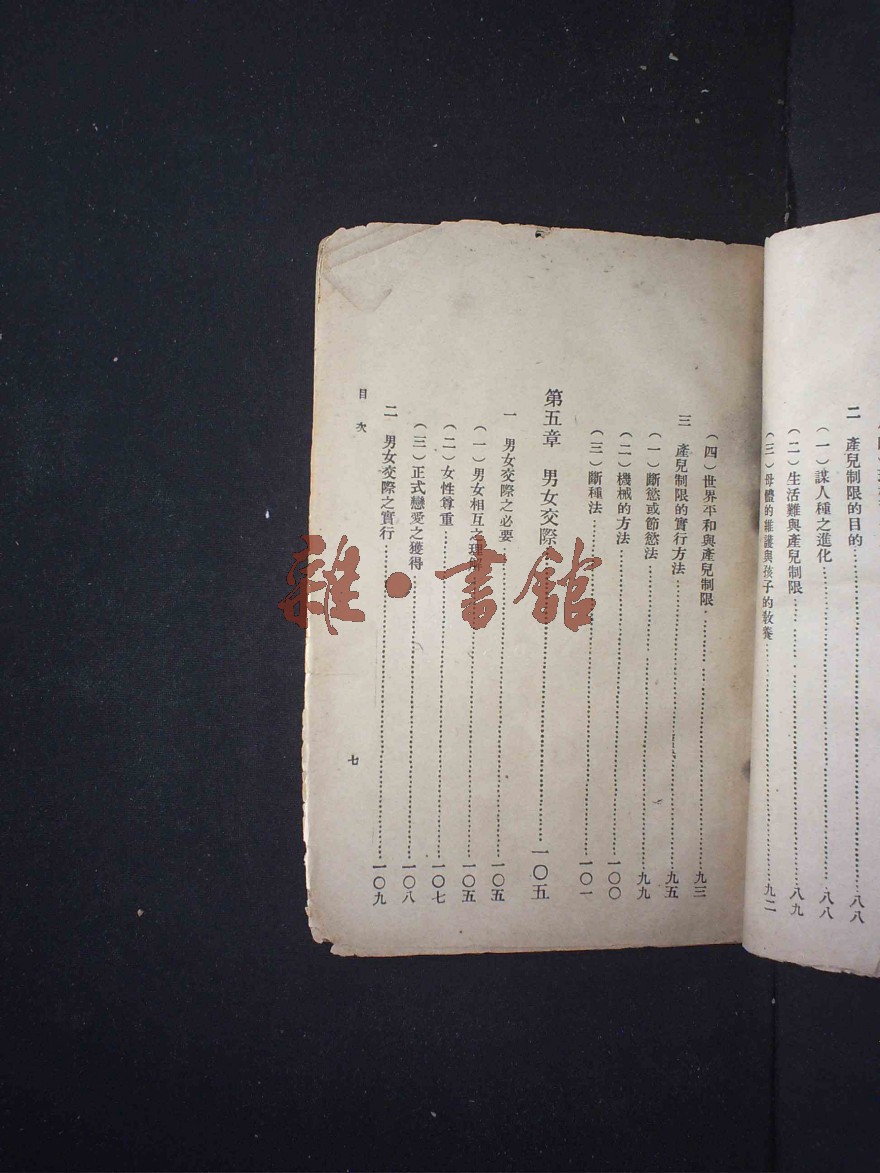 二 產兒制限的目的……八八
(一)謀人種之進化……八八
(二)生活難與產兒制限……八九
(三)母體的維護與孩子的敎養……九二
(四)世界平和與產兒制限……九三
三 產兒制限的實行方法……九五
(一)斷慾或節慾法……九九
(二)機械的方法……一〇〇
(三)斷種法……一〇一
第五章 男女交際……一〇五
一 男女交際之必要……一〇五
(一)男女相互之理解……一〇五
(二)女性尊重……一〇七
(三)正式戀愛之獲得……一〇八
二 男女交際之實行……一〇九
目次
七
雜·書館